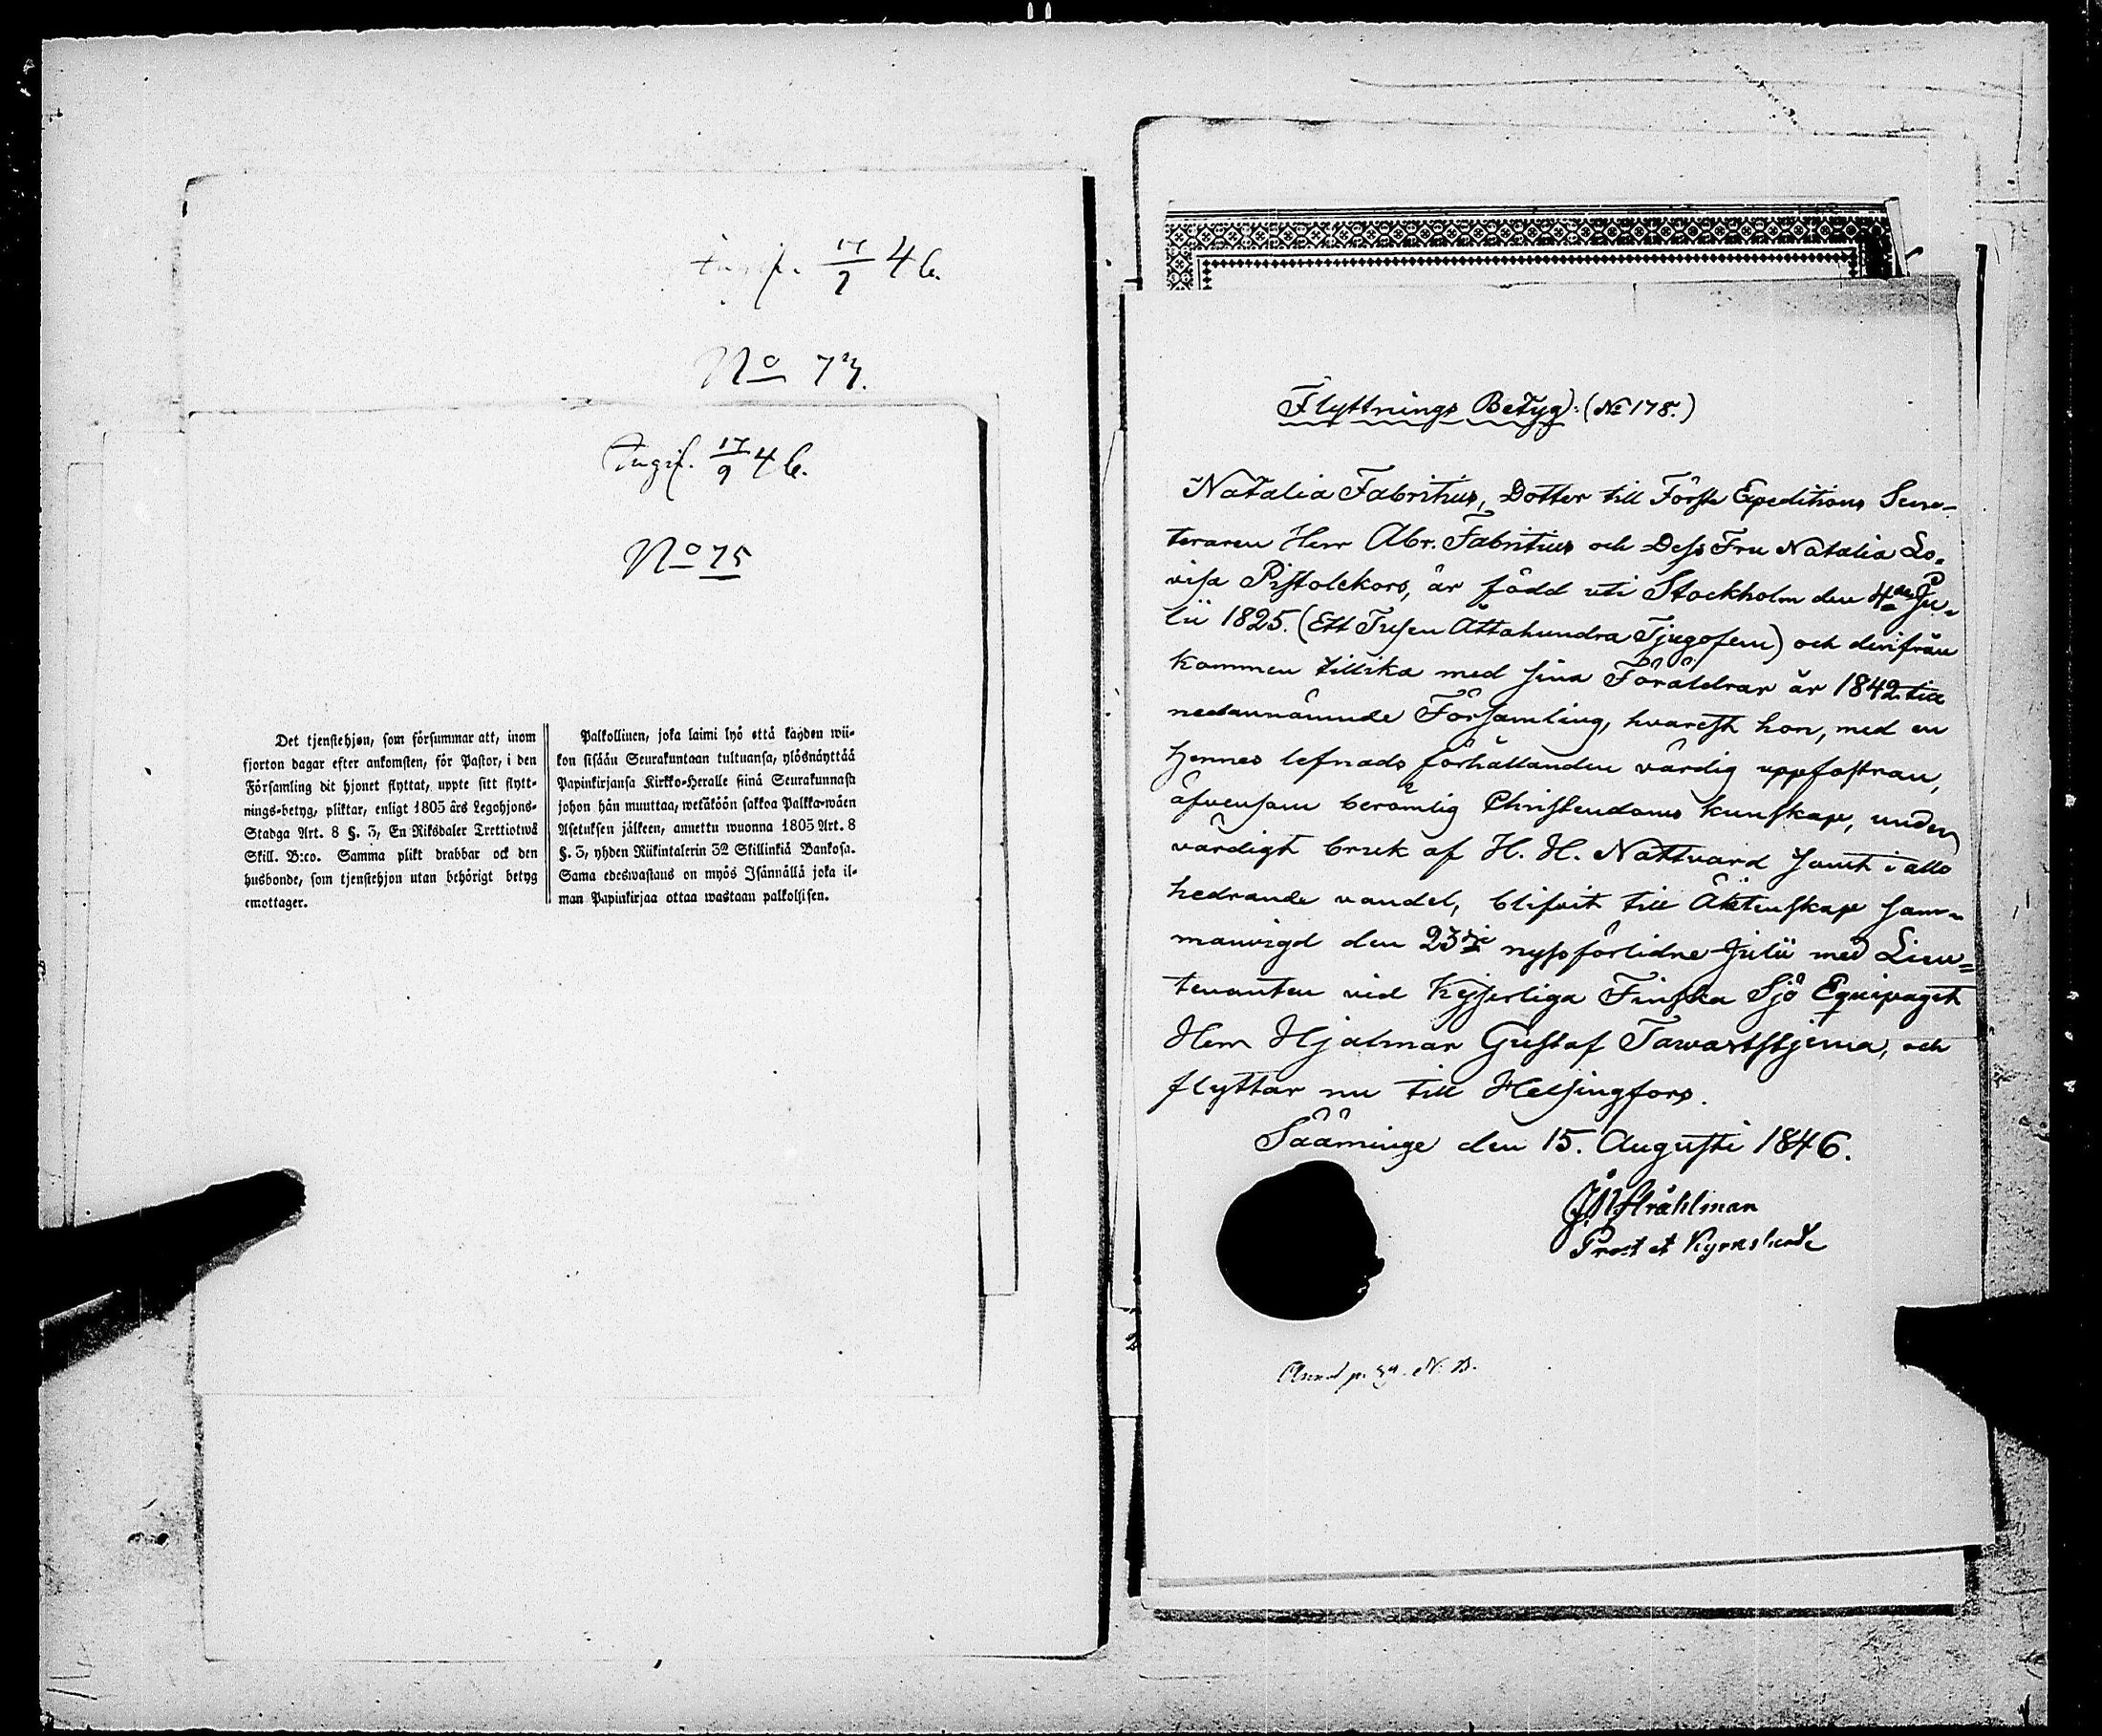 Ingif. 17/9 46.
No 74.
Ingif. 17/9 46.
No 75
Det tjenstehjon, som försummar att, inom
fjorton dagar efter ankomsten, för Pastor, i den
Församling dit hjonet flyttat, uppte sitt flytt-
nings-betyg, pliktar, enligt 1805 års Legohjons-
Stadga Art. 8 §. 3, En Riksdaler Trettiotwå
Skill. B:co. Samma plikt drabbar ock den
husbonde, som tjenstehjon utan behörigt betyg
emottager.
Palkollinen, joka laimi lyö että kahden wii-
kon sisään Seurakuntaan tultuansa, ylösnäyttää
Papinkirjansa Kirkko-Heralle siinä Seurakunnasa
johon hän muuttaa, wetäköön sakkoa Palkka-wäen
Asetuksen jälkeen, annettu wuonna 1805 Art. 8
§. 3, yhden Riikintalerin 32 Skillinkiä Bankosa.
Sama edeswastaus on myös Isännällä joka il-
man Papinkirjaa ottaa wastaan palkolisen.
Flyttnings Betyg: (No 178.)
Natalia Fabritius, Dotter till Förste Expeditions Secre-
teraren Herr Abr. Fabritius och Dess Fru Natalia Lo-
visa Pistolekors, är född uti Stockholm den 4de Ju-
lii 1825. (Ett Tusen Åttahundra Tjugofem) och derifrån
kommen tillika med sina Föräldrar år 1842 till
nedannämnde Församling, hvarest hon, med en
hennes lefnads förhållanden värdig uppfostran,
äfvensom berömlig Christendoms kunskap, under
värdigt bruk af H. H. Nattvard samt i allo
hedrande vandel, blifvit till Äktenskap sam-
manvigd den 23dje nyssförlidne Julii med Lieu-
tenanten vid Kejserliga Finska Sjö Equipaget
Herr Hjalmar Gustaf Tawaststjerna, och
flyttar nu till Helsingfors.
Sääminge den 15. Augusti 1846.
J. N. Stråhlman
Prost et Kyrkoherde
p. 59. N. B.